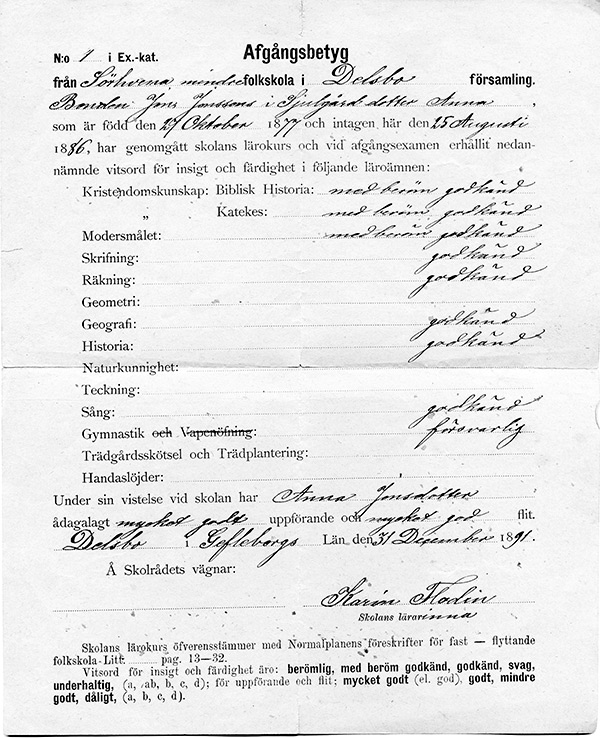 N:o 1 i Ex.-kat. Afgångsbetyg
från Sörhvena mindre folkskola i Delsbo församling.
Bonden Jons Jonssons i Sjulgård dotter Anna,
som är född den 27 Oktober 1877 och intagen här den 25 Augusti
1886, har genomgått skolans lärokurs och vid afgångsexamen erhållit nedan-
nämnde vitsord för insigt och färdighet i följande läroämnen:
Kristendomskunskap: Biblisk Historia: med beröm godkänd
„ Katekes: med beröm godkänd
Modersmålet: med beröm godkänd
Skrifning: godkänd
Räkning: godkänd
Geometri:
Geografi: godkänd
Historia: godkänd
Naturkunnighet:
Teckning:
Sång: godkänd
Gymnastik och Vapenöfning: försvarlig
Trädgårdsskötsel och Trädplantering:
Handaslöjder:
Under sin vistelse vid skolan har Anna Jonsdotter
ådagalagt mycket godt uppförande och mycket god flit.
Delsbo i Gefleborgs Län den 31 December 1891.
Å Skolrådets vägnar:
Karin Flodin
Skolans lärarinna
Skolans lärokurs öfverensstämmer med Normalplanens föreskrifter för fast — flyttande
folkskola - Litt. pag. 13—32.
Vitsord för insigt och färdighet äro: berömlig, med beröm godkänd, godkänd, svag,
underhaltig, (a, ab, b, c, d); för uppförande och flit: mycket godt (el. god), godt, mindre
godt, dåligt, (a, b, c, d).